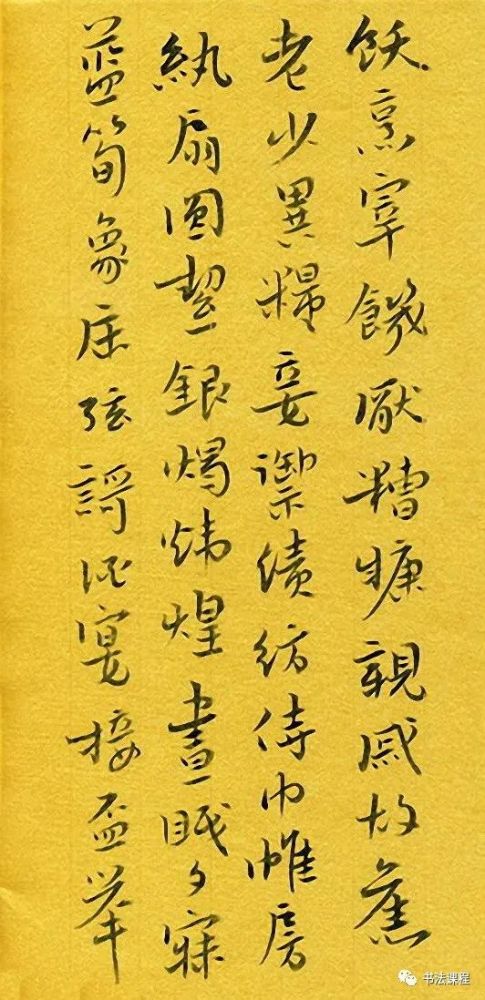 飫烹宰饑厭糟糠親戚故舊
老少異糧妾禦績紡侍巾帷房
紈扇圓絜銀燭煒煌晝眠夕寐
藍筍象床弦謌酒宴接盃舉
书法课程